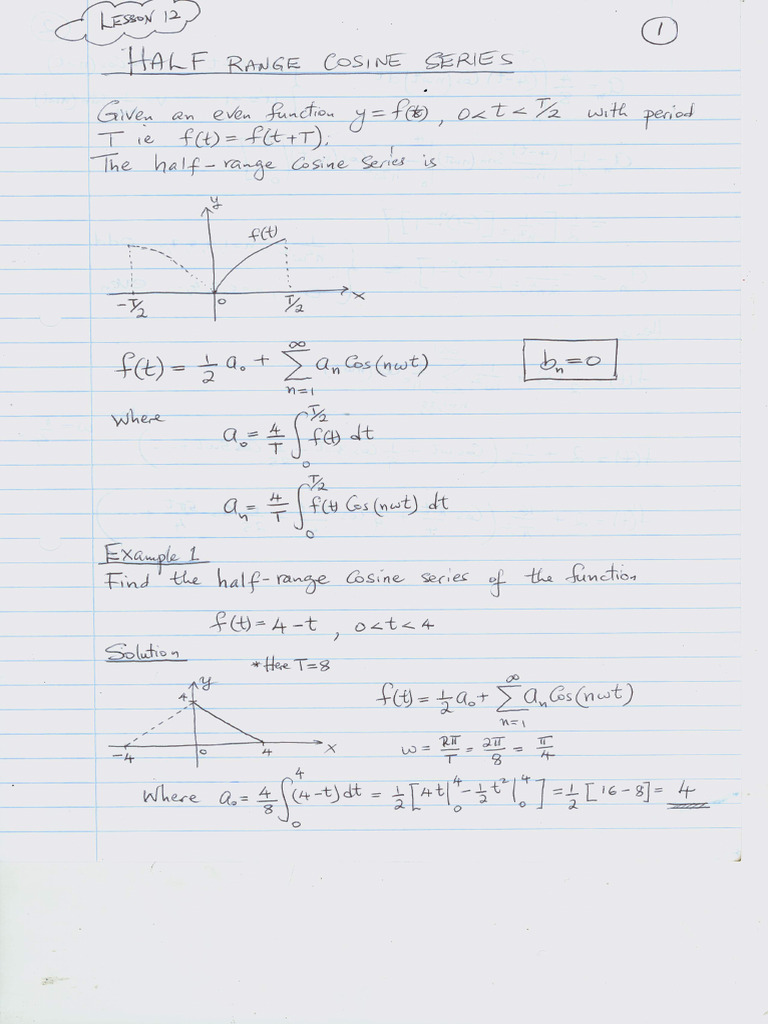 LESSON 12
1
HALF RANGE COSINE SERIES
Given an even function y = f(t), 0<t<T/2 with period
T ie f(t) = f(t+T);
The half-range Cosine Series is
y
f(t)
-T/2 0 T/2 x
f(t) = 1/2 a₀ + ∑_{n=1}^{∞} aₙ Cos(nωt)
bₙ = 0
Where
a₀ = 4/T ∫₀^{T/2} f(t) dt
aₙ = 4/T ∫₀^{T/2} f(t) Cos(nωt) dt
Example 1
Find the half-range Cosine series of the function
f(t) = 4-t , 0<t<4
Solution
*Here T=8
y
4
-4 0 4 x
f(t) = 1/2 a₀ + ∑_{n=1}^{∞} aₙ Cos(nωt)
ω = 2π/T = 2π/8 = π/4
Where a₀ = 4/8 ∫₀⁴ (4-t) dt = 1/2 [4t|₀⁴ - 1/2 t²|₀⁴] = 1/2 [16-8] = 4